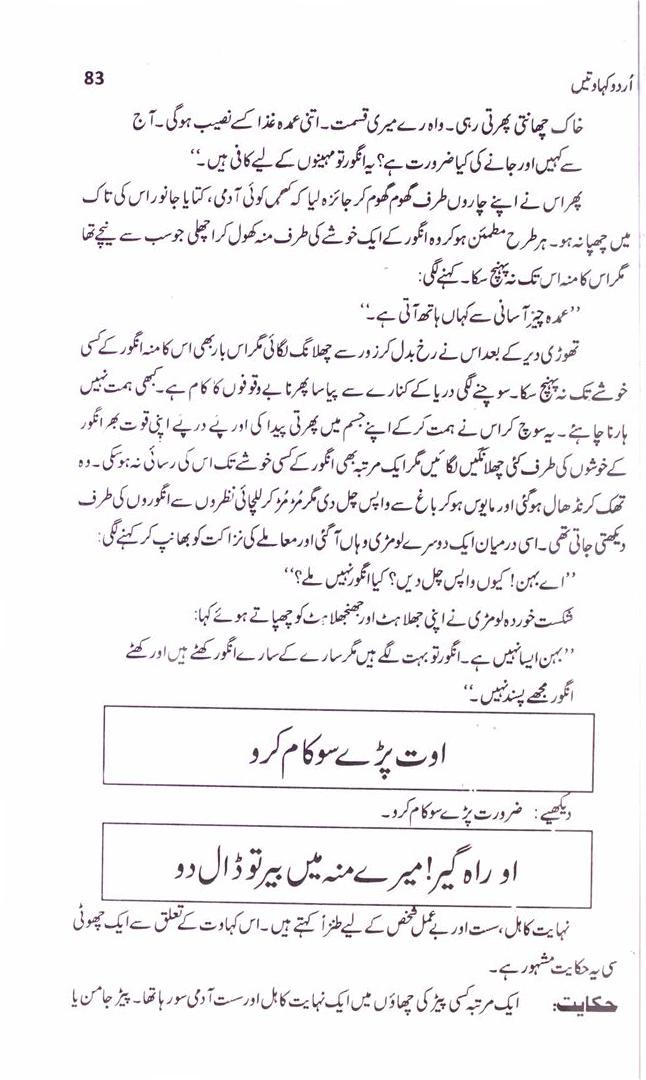 اُردو کہاوتیں
83
خاک چھانتی پھرتی رہی۔ واہ رے میری قسمت۔ اتنی عمدہ غذا کسے نصیب ہوگی۔ آج
سے کہیں اور جانے کی کیا ضرورت ہے؟ یہ انگور تو مہینوں کے لیے کافی ہیں۔‘‘
پھر اس نے اپنے چاروں طرف گھوم گھوم کر جائزہ لیا کہ کہیں کوئی آدمی، کتا یا جانور اس کی تاک
میں چھپا نہ ہو۔ ہر طرح مطمئن ہو کر وہ انگور کے ایک خوشے کی طرف منہ کھول کر اچھلی جو سب سے نیچے تھا
مگر اس کا منہ اس تک نہ پہنچ سکا۔ کہنے لگی:
’’عمدہ چیز آسانی سے کہاں ہاتھ آتی ہے۔‘‘
تھوڑی دیر کے بعد اس نے رخ بدل کر زور سے چھلانگ لگائی مگر اس بار بھی اس کا منہ انگور کے کسی
خوشے تک نہ پہنچ سکا۔ سوچنے لگی دریا کے کنارے سے پیاسا پھرنا بے وقوفوں کا کام ہے۔ کبھی ہمت نہیں
ہارنا چاہئے۔ یہ سوچ کر اس نے ہمت کر کے اپنے جسم میں پھرتی پیدا کی اور پے درپے اپنی قوت بھر انگور
کے خوشوں کی طرف کئی چھلانگیں لگائیں مگر ایک مرتبہ بھی انگور کے کسی خوشے تک اس کی رسائی نہ ہو سکی۔ وہ
تھک کر نڈھال ہو گئی اور مایوس ہو کر باغ سے واپس چل دی مگر مُڑ مُڑ کر للچائی نظروں سے انگوروں کی طرف
دیکھتی جاتی تھی۔ اسی درمیان ایک دوسرے لومڑی وہاں آ گئی اور معاملے کی نزاکت کو بھانپ کر کہنے لگی:
’’اے بہن! کیوں واپس چل دیں؟ کیا انگور نہیں ملے؟‘‘
شکست خوردہ لومڑی نے اپنی جھلاہٹ اور جھنجھلاہٹ کو چھپاتے ہوئے کہا:
’’بہن ایسا نہیں ہے۔ انگور تو بہت لگے ہیں مگر سارے کے سارے انگور کھٹے ہیں اور کھٹے
انگور مجھے پسند نہیں۔‘‘
اوت پڑے سو کام کرو
دیکھیے: ضرورت پڑے سو کام کرو۔
او راہ گیر! میرے منہ میں بیر تو ڈال دو
نہایت کاہل، سست اور بے عمل شخص کے لیے طنزاً کہتے ہیں۔ اس کہاوت کے تعلق سے ایک چھوٹی
سی یہ حکایت مشہور ہے۔
حکایت: ایک مرتبہ کسی پیڑ کی چھاؤں میں ایک نہایت کاہل اور سست آدمی سو رہا تھا۔ پیڑ جامن یا